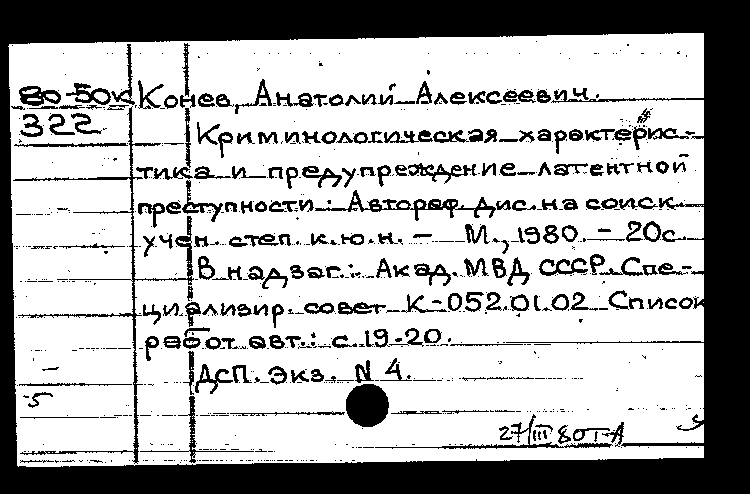 80-50к Конев, Анатолий Алексеевич.
322 Криминологическая характерис-
тика и предупреждение латентной
преступности: Автореф. дис. на соиск.
учен. степ. к.ю.н. – М., 1980. – 20с.
В надзаг.: Акад. МВД СССР. Спе-
циализир. совет К-052.01.02 Список
работ авт.: с. 19-20.
ДСП. Экз. N 4.
5
27/III 80